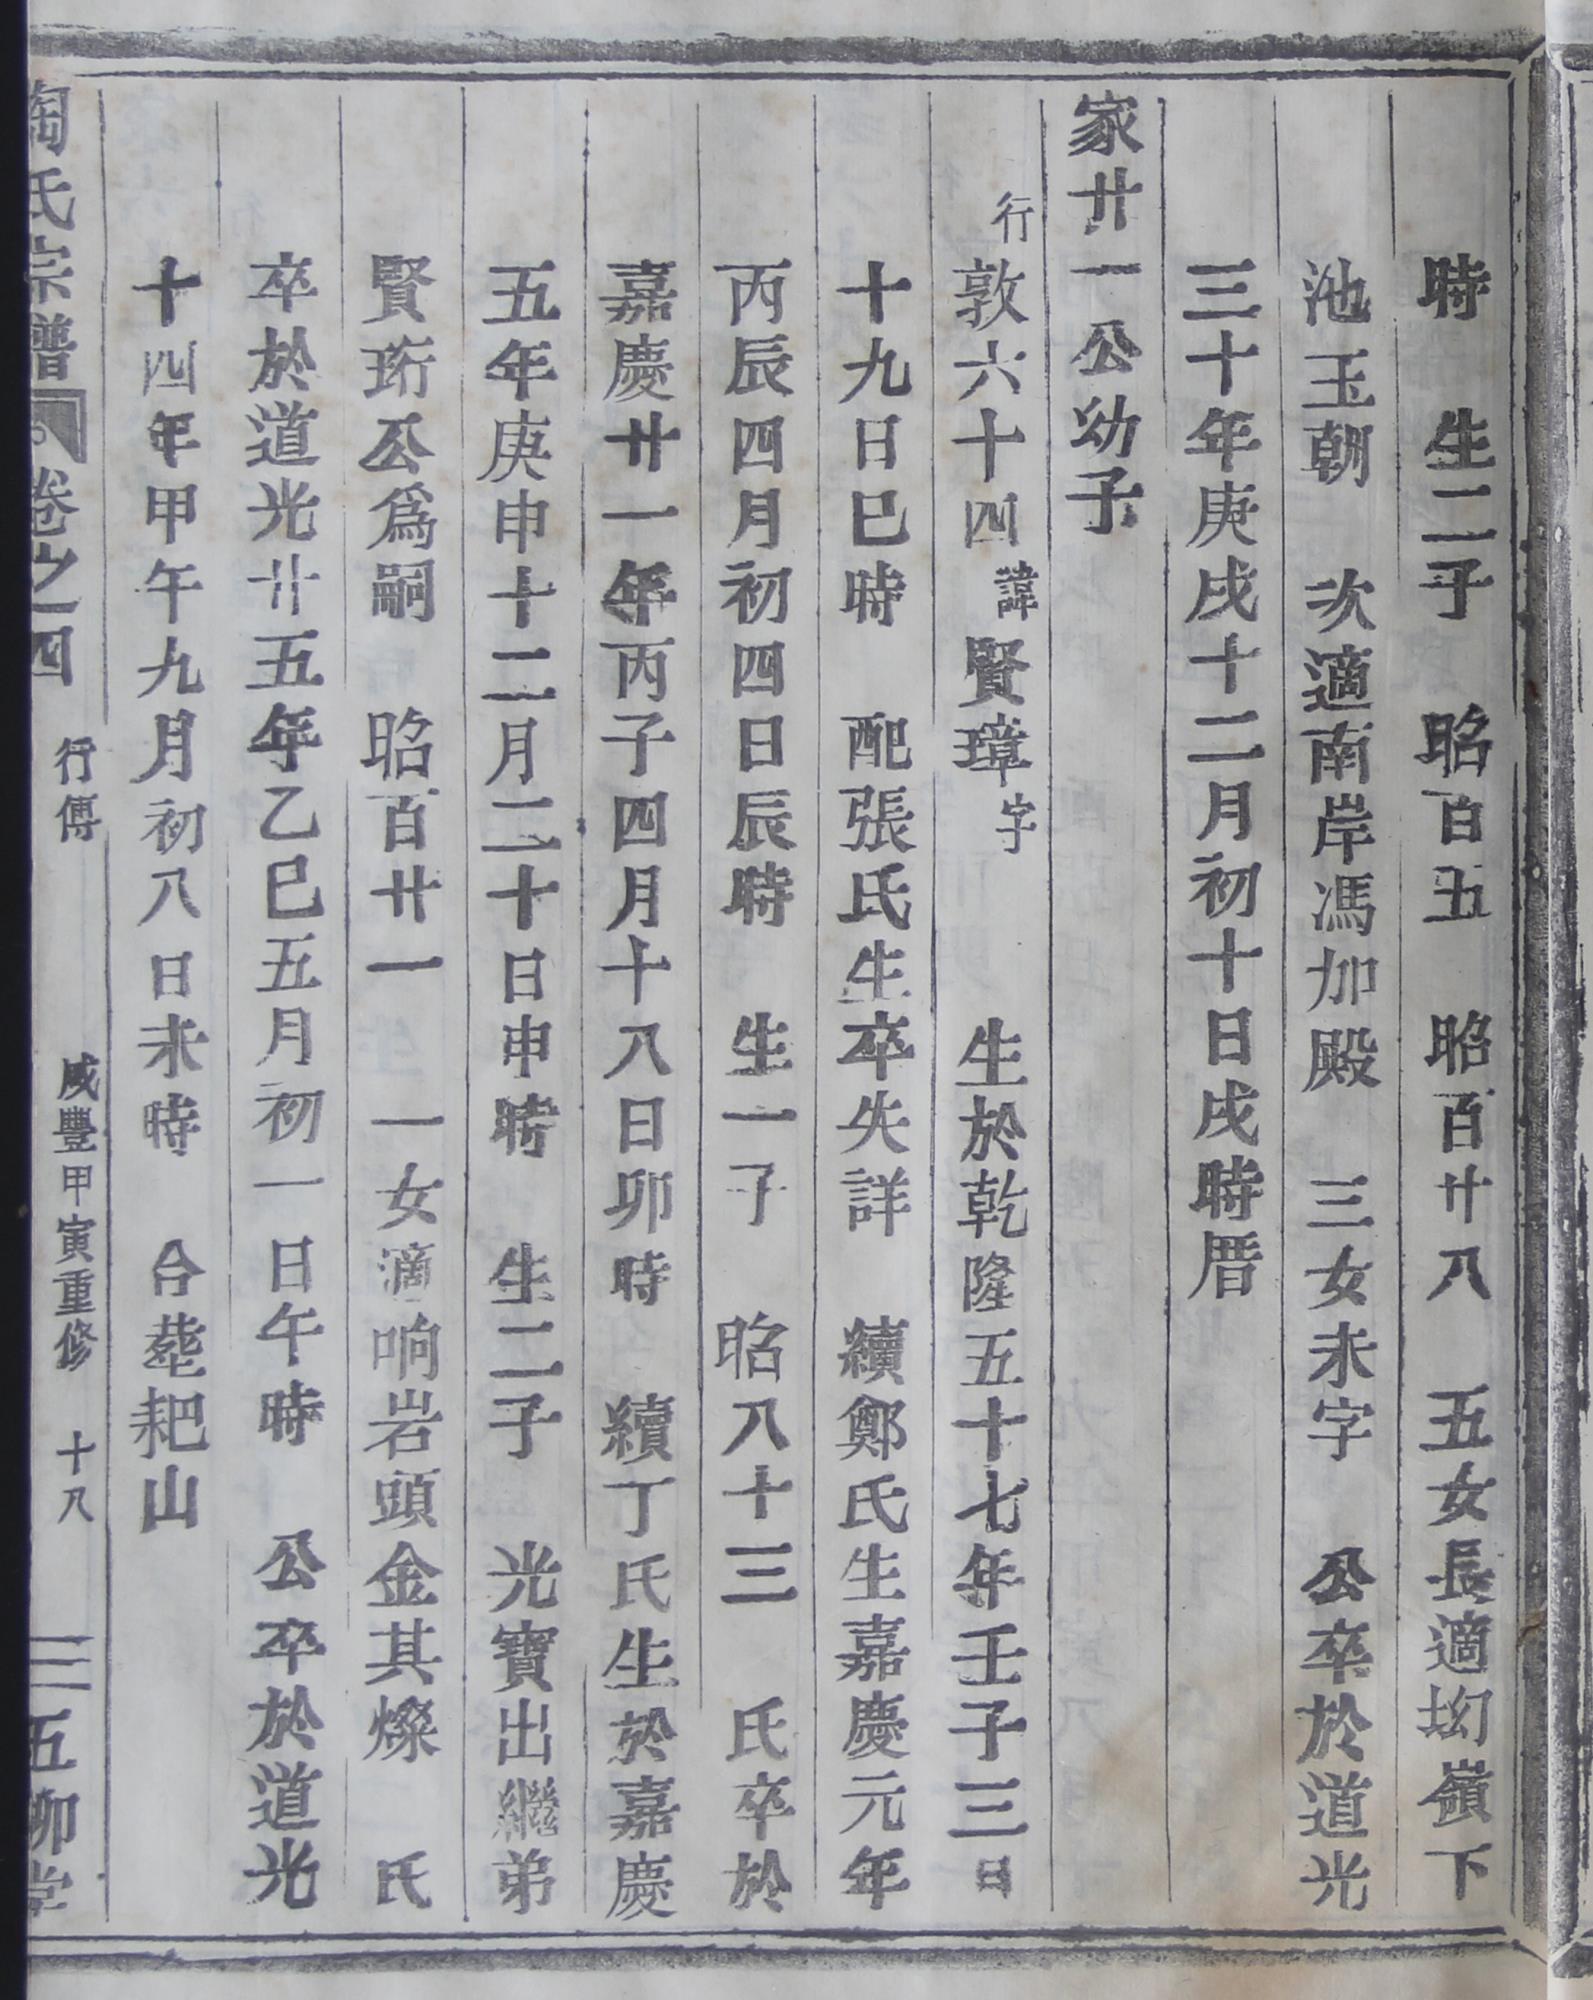 時　生二子　昭百五　昭百廿八　五女長適坳嶺下
池玉朝　次適南岸馮加殿　三女未字　公卒於道光
三十年庚戌十二月初十日戌時厝
家廿一公幼子
行敦六十四諱賢璋字　生於乾隆五十七年壬子三日
十九日巳時　配張氏生卒失詳　續鄭氏生嘉慶元年
丙辰四月初四日辰時　生一子　昭八十三　氏卒於
嘉慶廿一年丙子四月十八日卯時　續丁氏生於嘉慶
五年庚申十二月二十日申時　生二子　光寶出繼弟
賢珩公爲嗣　昭百廿一　一女適响岩頭金其燦　氏
卒於道光廿五年乙巳五月初一日午時　公卒於道光
十四年甲午九月初八日未時　合塟耙山
陶氏宗譜　卷之四　行傳　咸豐甲寅重修　十八　五柳堂